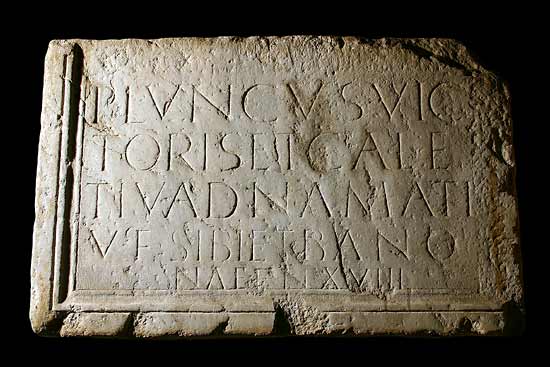 PLVNCVSVIC
TORISETGALE
TIVADNAMATI
VF SIBI ETBANO
NAE FIL XVIII